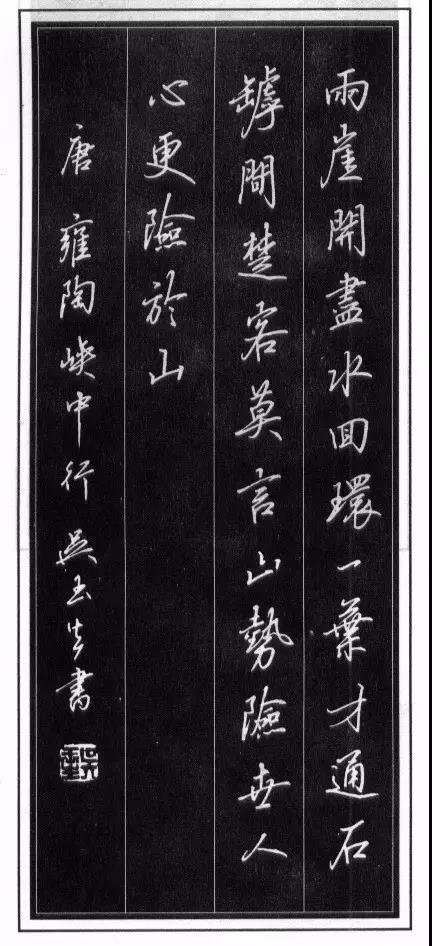 雨崖開盡水回環一葉才通石
罅間楚客莫言山勢險世人
心更險於山
唐 雍陶峽中行 吳玉生書